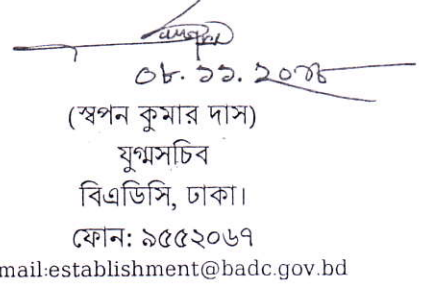 (স্বপন কুমার দাস)
যুগ্মসচিব
বিএডিসি, ঢাকা।
ফোন: ৯৫৫২০৬৭
mail:establishment@badc.gov.bd